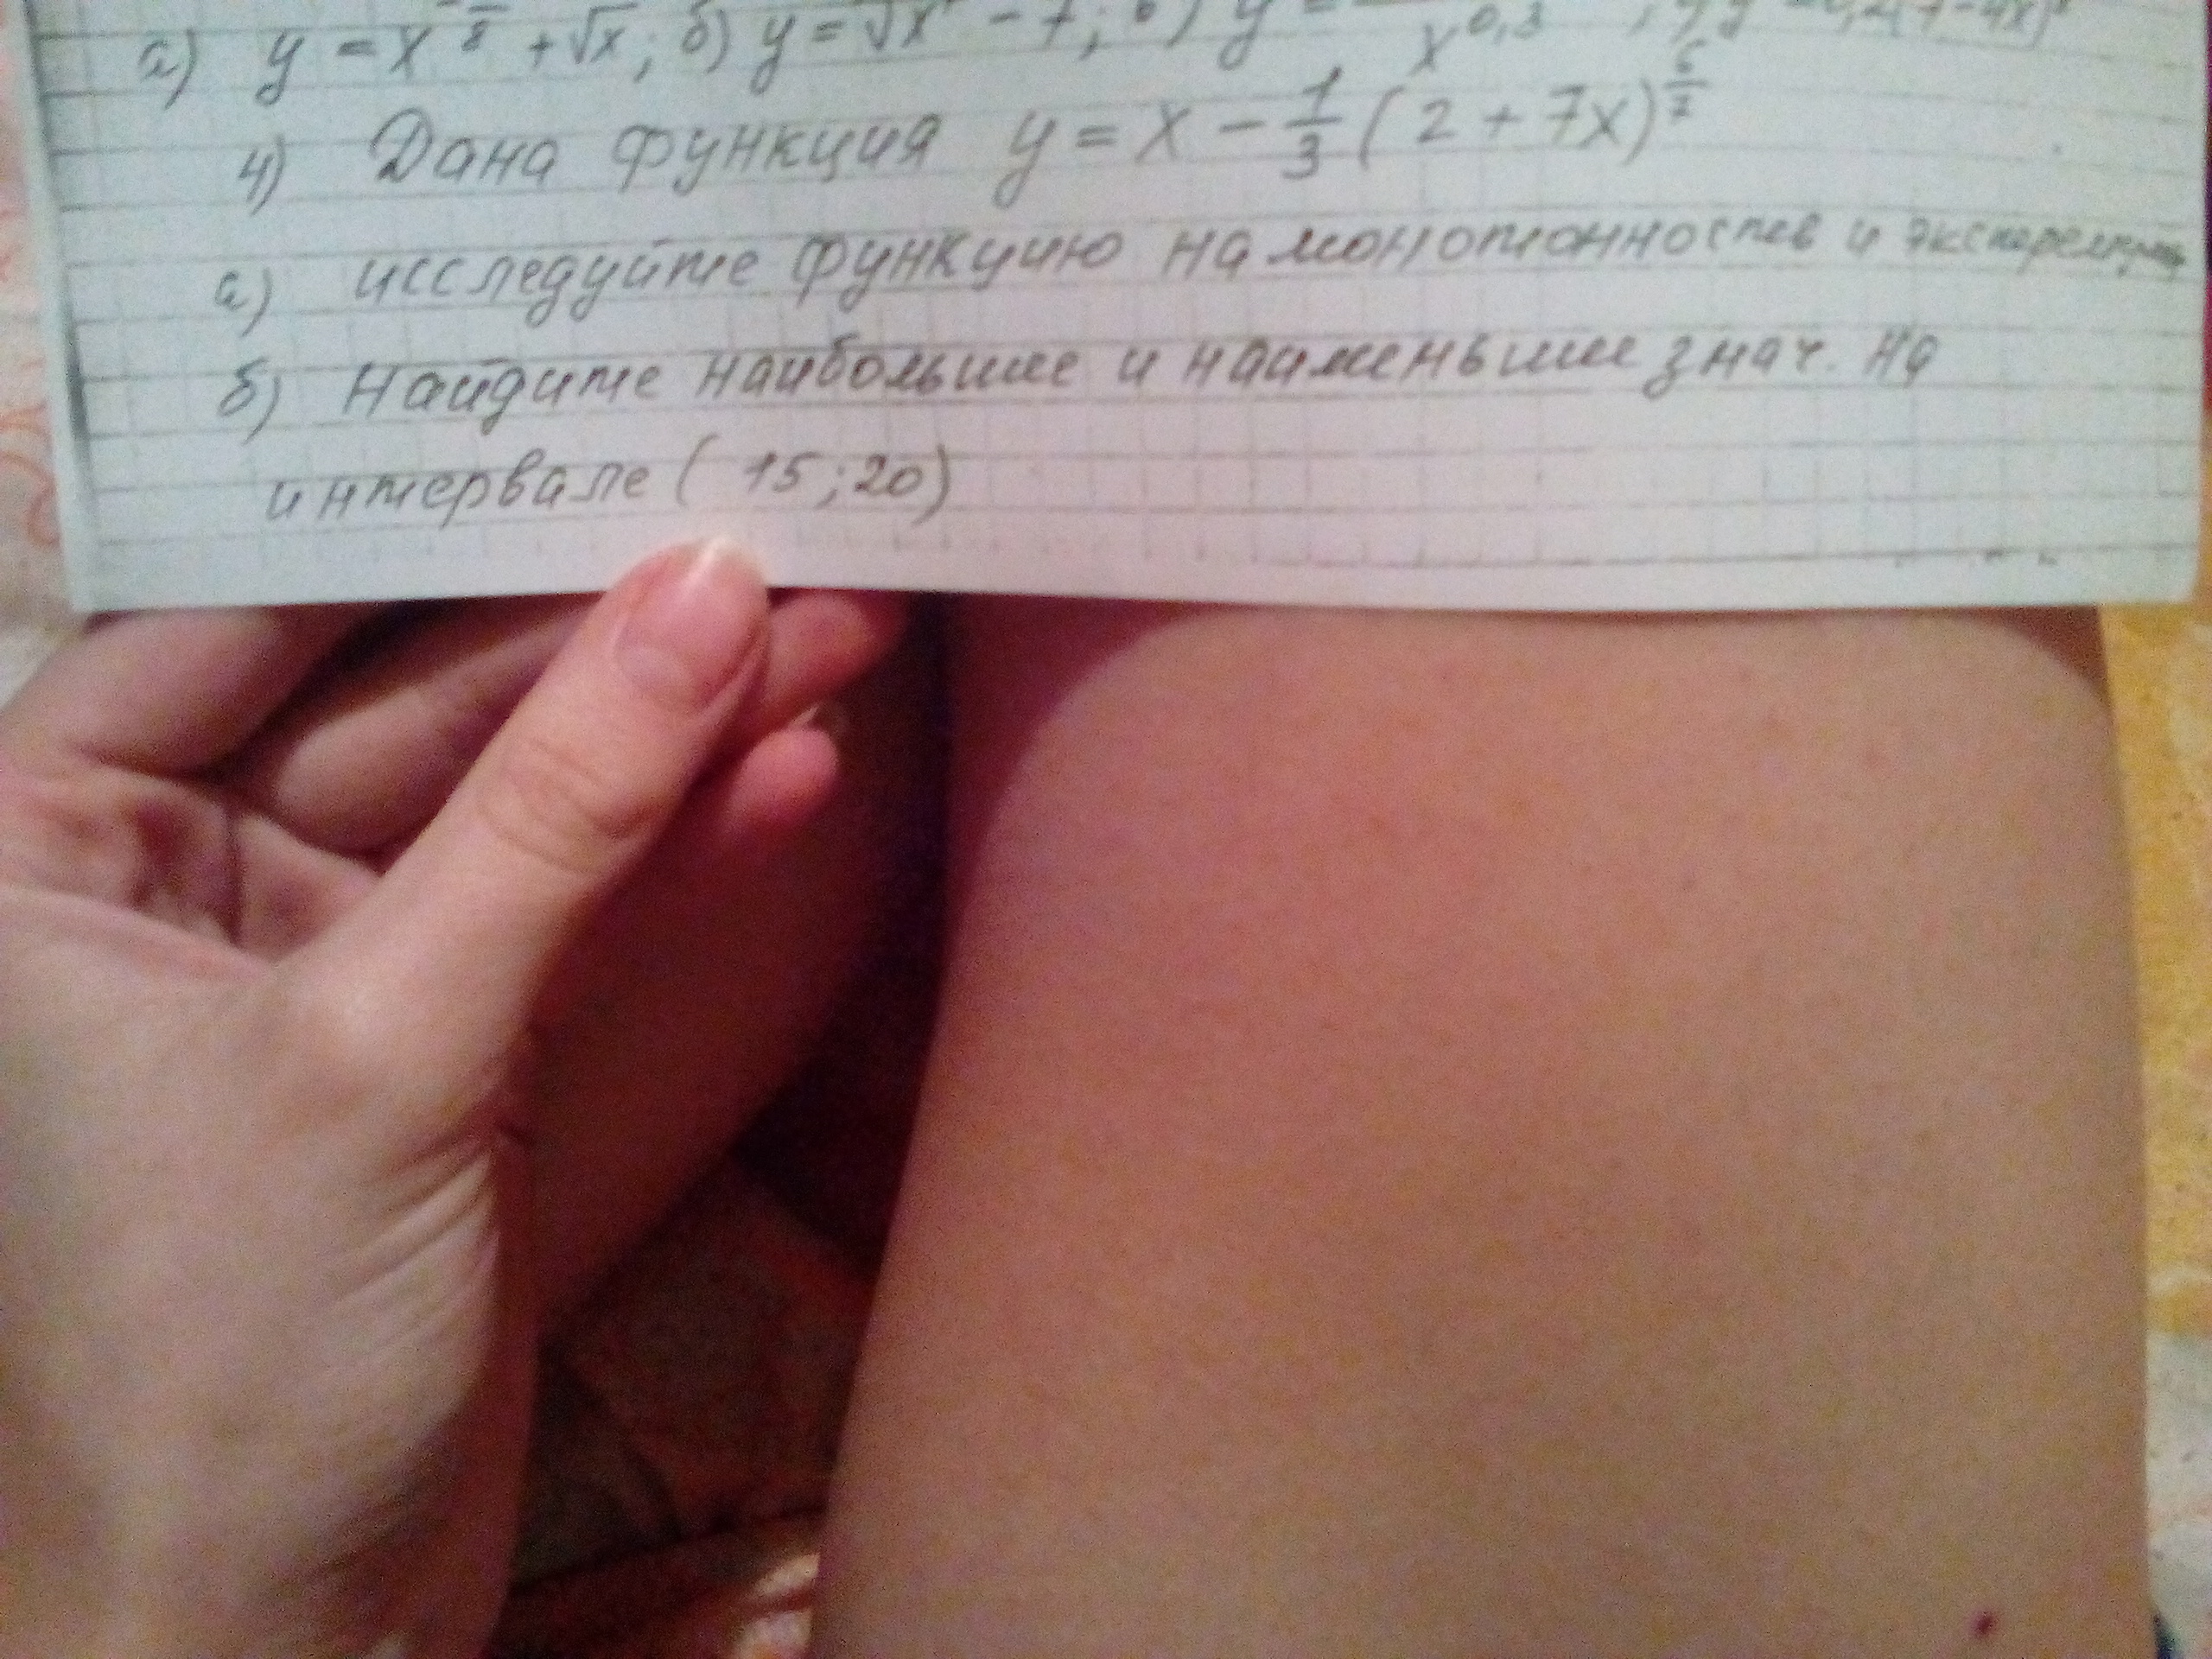 а) y = x + √x; б) y = √x - 7; в) y = x^0,3
4) Дана функция y = x - 1/3 (2 + 7x)^6/7
а) исследуйте функцию на монотонность и
б) Найдите наибольшие и наименьшие знач. на
интервале ( 15; 20)